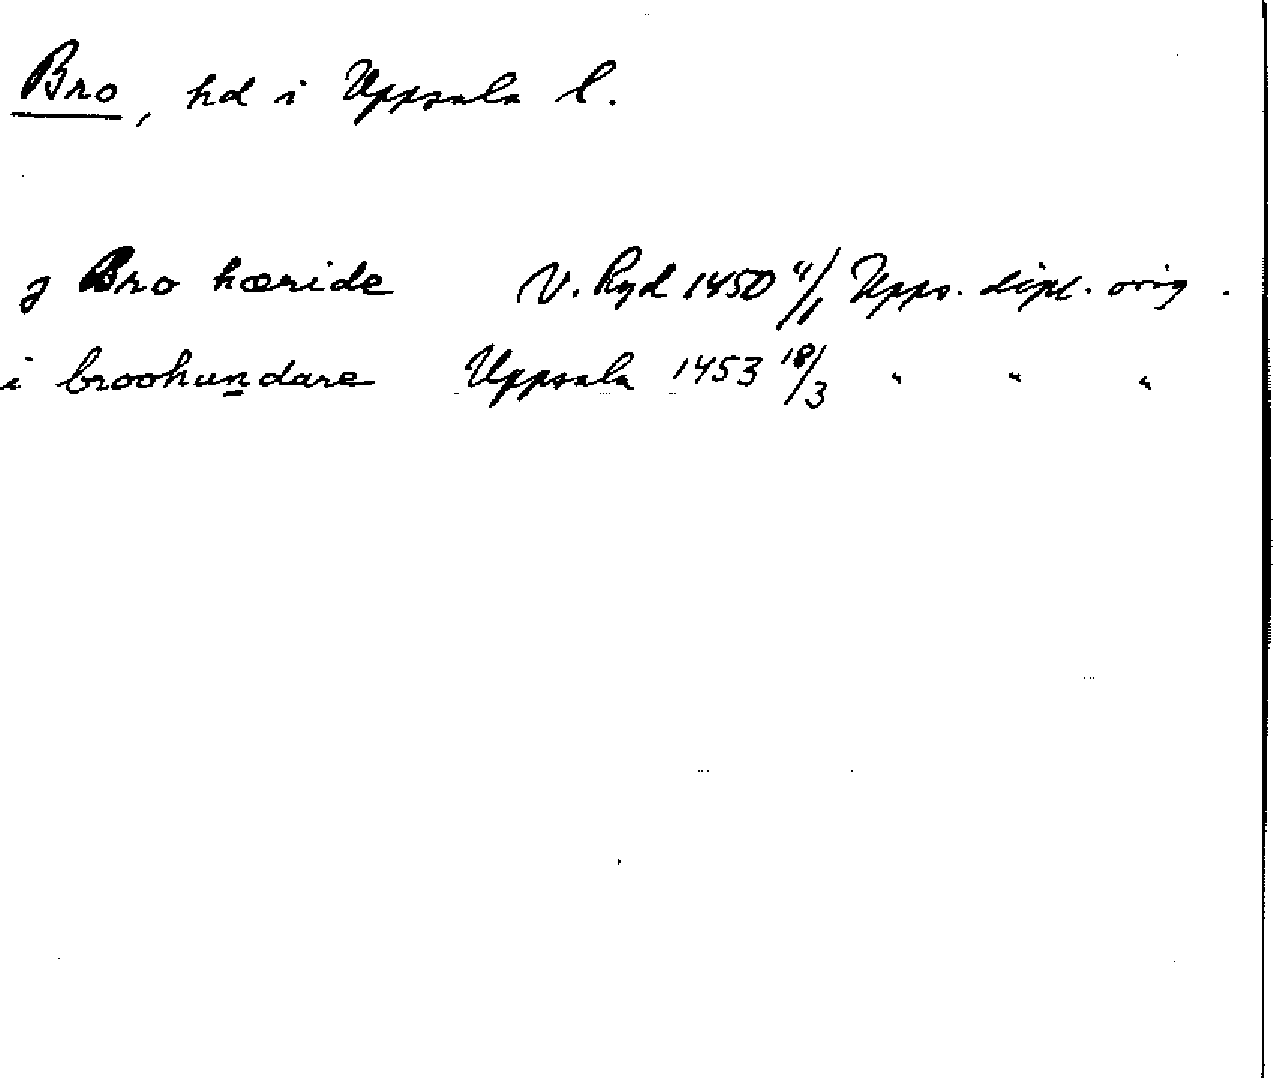 Bro, hd i Uppsala l.
j Bro hæride V. Ryd 1450 11/1 Upps. dipl. orig.
i broohundare Uppsala 1453 18/3 " " "